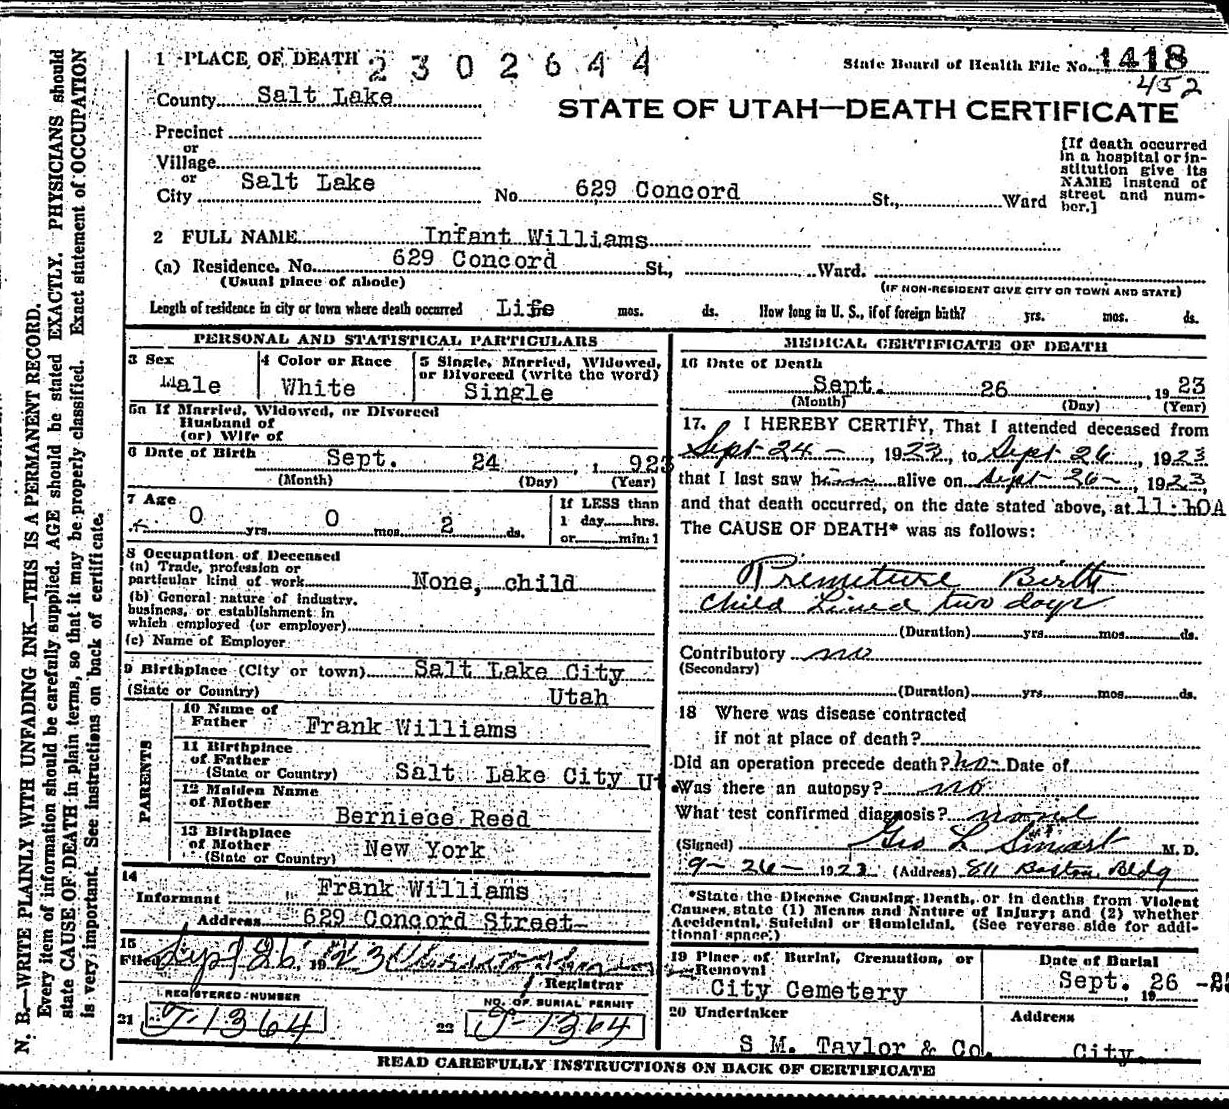 1 PLACE OF DEATH 2302644
State Board of Health File No. 1418
452
County Salt Lake
STATE OF UTAH—DEATH CERTIFICATE
Precinct
or
Village
or
City Salt Lake No. 629 Concord St., Ward
[If death occurred
in a hospital or in-
stitution give its
NAME instead of
street and num-
ber.]
2 FULL NAME Infant Williams
(a) Residence. No. 629 Concord St., Ward.
(Usual place of abode)
(IF NON-RESIDENT GIVE CITY OR TOWN AND STATE)
Length of residence in city or town where death occurred Life mos. ds. How long in U. S., if of foreign birth? yrs. mos. ds.
PERSONAL AND STATISTICAL PARTICULARS
3 Sex
Male
4 Color or Race
White
5 Single, Married, Widowed,
or Divorced (write the word)
Single
5a If Married, Widowed, or Divorced
Husband of
(or) Wife of
6 Date of Birth Sept. 24, 1923
(Month) (Day) (Year)
7 Age
0 yrs. 0 mos. 2 ds.
If LESS than
1 day hrs.
or min.
8 Occupation of Deceased
(a) Trade, profession or
particular kind of work None, child
(b) General nature of industry,
business, or establishment in
which employed (or employer)
(c) Name of Employer
9 Birthplace (City or town) Salt Lake City
(State or Country) Utah
PARENTS
10 Name of
Father Frank Williams
11 Birthplace
of Father
(State or Country) Salt Lake City Ut
12 Maiden Name
of Mother Berniece Reed
13 Birthplace
of Mother
(State or Country) New York
14
Informant Frank Williams
Address 629 Concord Street
15
Filed Sept 26 1923
Registrar
REGISTERED NUMBER
21 J-1364
NO. OF BURIAL PERMIT
22 J-1364
MEDICAL CERTIFICATE OF DEATH
16 Date of Death
Sept. 26, 1923
(Month) (Day) (Year)
17. I HEREBY CERTIFY, That I attended deceased from
Sept 24 —, 1923, to Sept 26, 1923
that I last saw him alive on Sept 26 —, 1923,
and that death occurred, on the date stated above, at 11:10A
The CAUSE OF DEATH* was as follows:
Premeture Birth
Child Lived two days
(Duration) yrs. mos. ds.
Contributory no
(Secondary)
(Duration) yrs. mos. ds.
18 Where was disease contracted
if not at place of death?
Did an operation precede death? no Date of
Was there an autopsy? no
What test confirmed diagnosis? none
(Signed) Geo L Smart M. D.
9-26- 1923 (Address) 811 Boston Bldg
*State the Disease Causing Death, or in deaths from Violent
Causes, state (1) Means and Nature of Injury; and (2) whether
Accidental, Suicidal or Homicidal. (See reverse side for addi-
tional space.)
19 Place of Burial, Cremation, or
Removal
City Cemetery
Date of Burial
Sept. 26 -23
19
20 Undertaker
S M. Taylor & Co.
Address
City.
READ CAREFULLY INSTRUCTIONS ON BACK OF CERTIFICATE
N. B.—WRITE PLAINLY WITH UNFADING INK—THIS IS A PERMANENT RECORD.
Every item of information should be carefully supplied. AGE should be stated EXACTLY. PHYSICIANS should
state CAUSE OF DEATH in plain terms, so that it may be properly classified. Exact statement of OCCUPATION
is very important. See instructions on back of certificate.